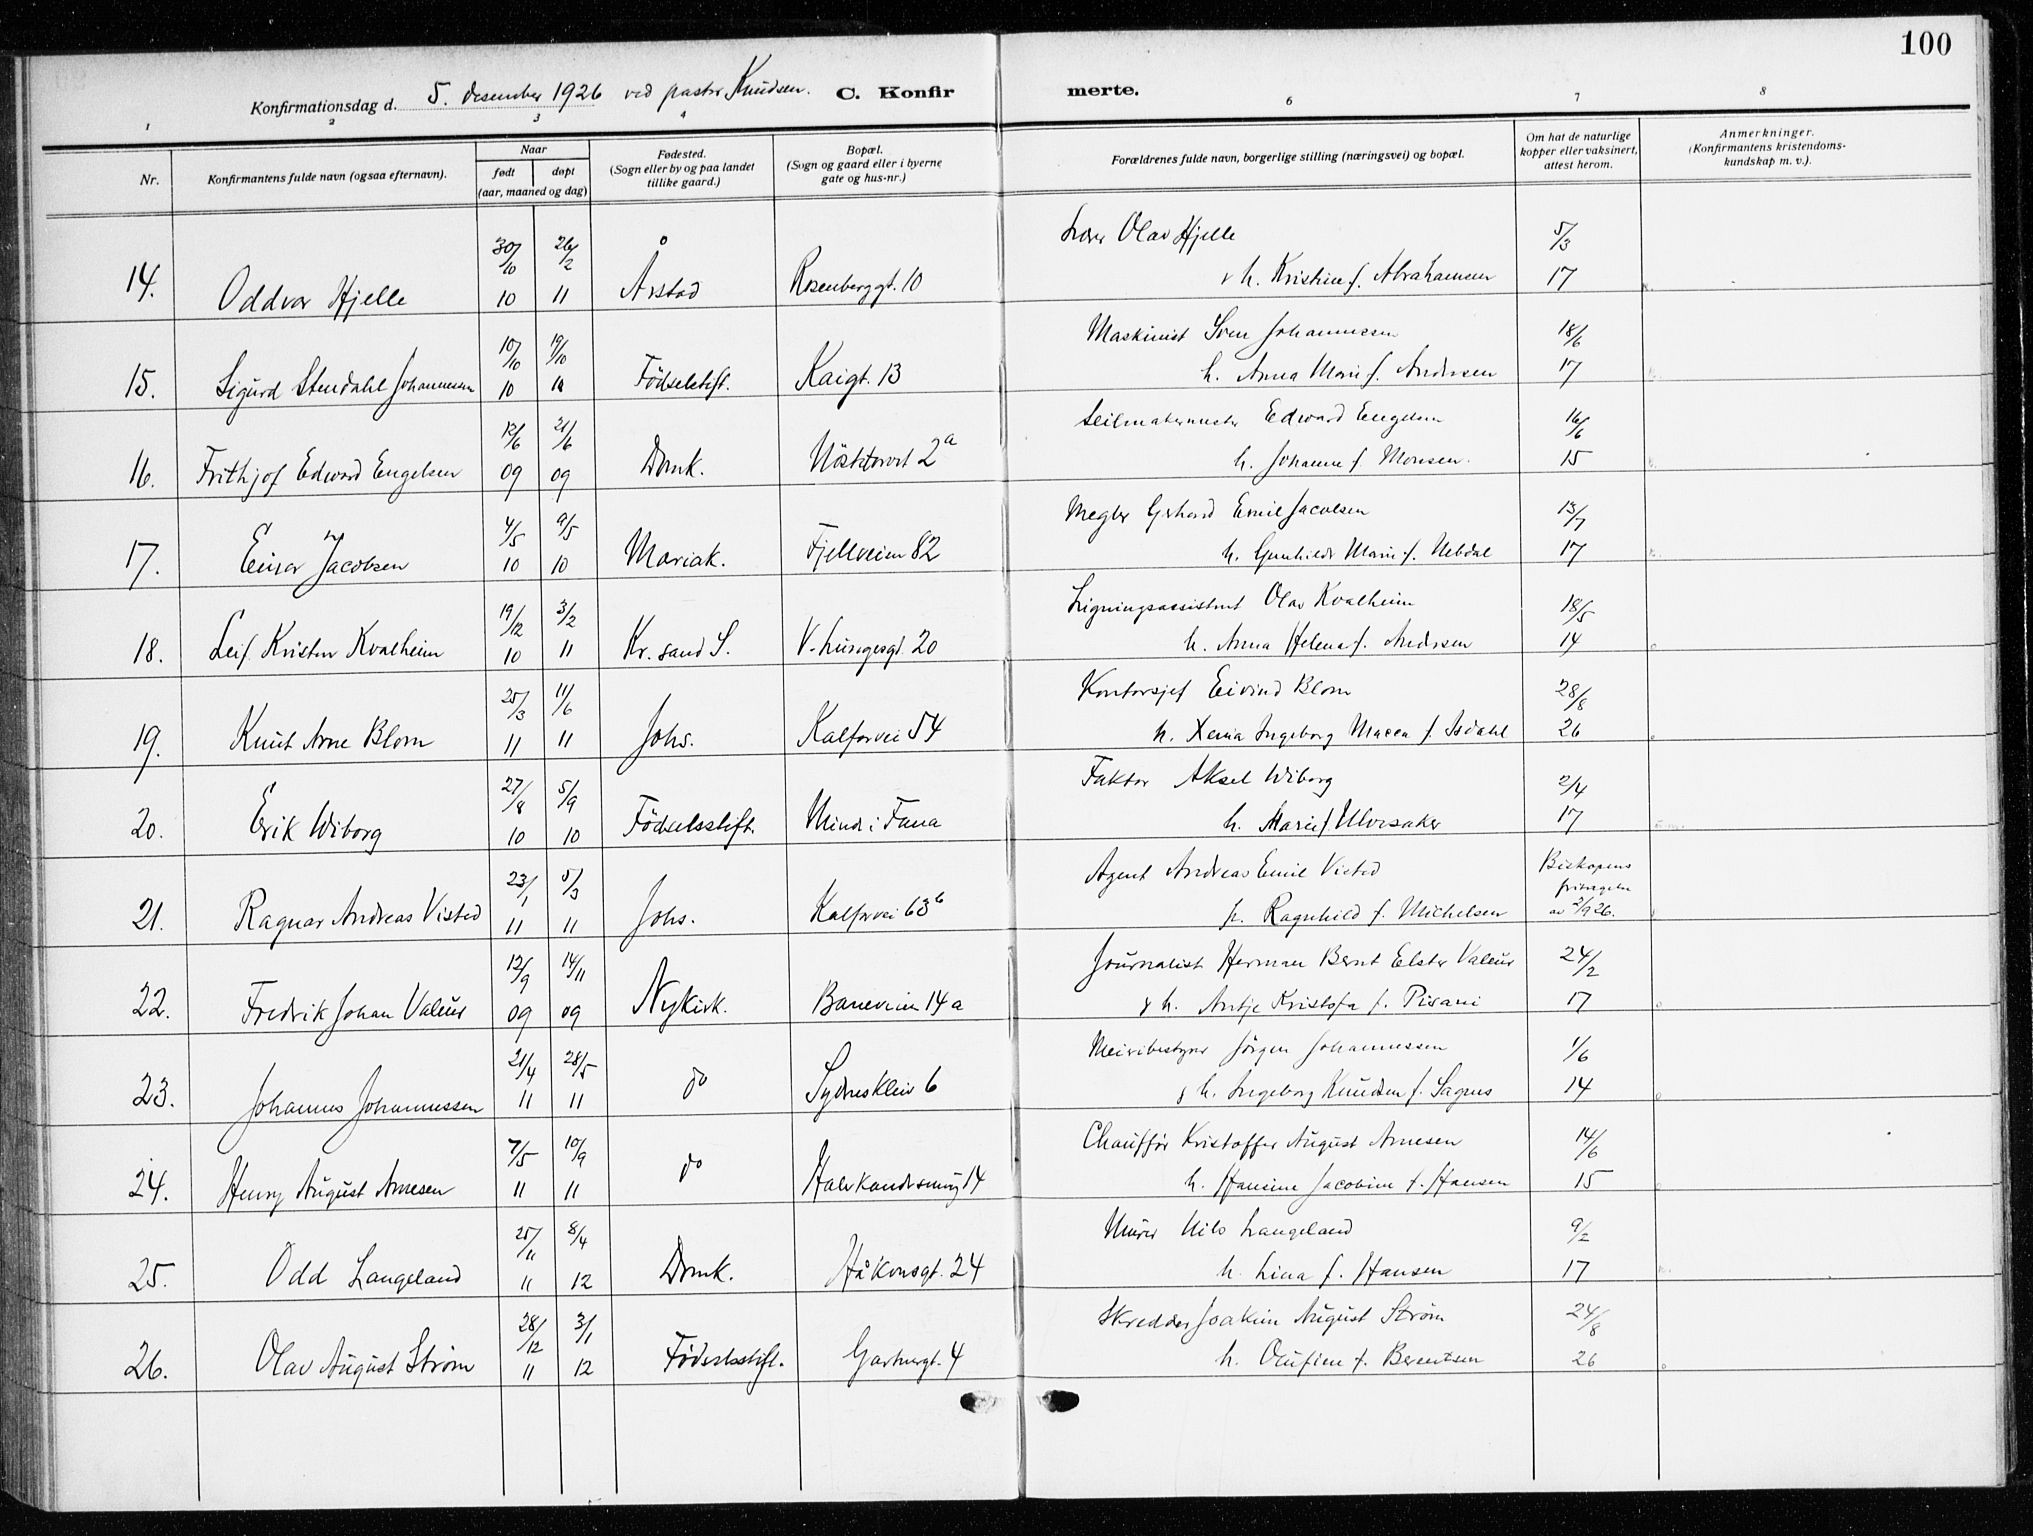 100
Konfirmationsdag d. 5. desember 1926 ved pastor Knudsen. C. Konfir merte.
1 2 3 4 6 7 8
Nr.
Konfirmantens fulde navn (ogsaa efternavn).
Naar
født døpt
(aar, maaned og dag)
Fødested.
(Sogn eller by og paa landet
tillike gaard.)
Bopæl.
(Sogn og gaard eller i byerne
gate og hus-nr.)
Forældrenes fulde navn, borgerlige stilling (næringsvei) og bopæl.
Om hat de naturlige
kopper eller vaksinert,
attest herom.
Anmerkninger.
(Konfirmantens kristendoms-
kundskap m. v.).
30/10 26/2 Lærer Olav Hjelle 5/3
14. Oddvar Hjelle 10 11 Årstad Rosenberggt. 10 & h. Kristine f. Abrahamsen 17
10/10 19/10 Maskinist Sven Johannessen 18/6
15. Sigurd Stendahl Johannessen 10 10 Födselstift. Kaigt. 13 h. Anna Marie f. Andersen 17
12/6 21/6 Seilmakermester Edward Engelsen 16/6
16. Frithjof Edward Engelsen 09 09 Domk. Nöstetorvet 2a h. Johanne f. Monsen. 15
4/5 9/5 Megler Gerhard Emil Jacobsen 13/7
17. Einar Jacobsen 10 10 Mariak. Fjellveien 82 h. Gunhilde Marie f. Nebdal 17
19/12 3/2 Ligningsassistent Olav Kvalheim 18/5
18. Leif Krister Kvalheim 10 11 Kr. sand S. V. Lungegt. 20 h. Anna Helena f. Andersen 14
25/3 11/6 Kontorsjef Eivind Blom 28/8
19. Knut Arne Blom 11 11 Johs. Kalfarvei 54 h. Xenia Ingeborg Macea f. Isdahl 26
27/8 5/9 Faktor Aksel Wiborg 2/4
20. Erik Wiborg 10 10 Födselsstift. Minde i Fana h. Marie f. Ulvesaker 17
23/1 5/3 Agent Andreas Emil Visted Biskopens
fritagelse
21. Ragnar Andreas Visted 11 11 Johs. Kalfarvei 63b h. Ragnhild f. Michelsen av 2/9 26.
12/9 14/11 Journalist Herman Bernt Elster Valeur 24/2
22. Fredrik Johan Valeur 09 09 Nykirk. Baneveien 14a & h. Antje Kristofa f. Pisani 17
21/4 28/5 Meieribestyrer Jörgen Johannessen 1/6
23. Johannes Johannessen 11 11 do Sydneskleiv 6 & h. Ingeborg Knudsen f. Sagnes 14
7/5 10/9 Chaufför Kristoffer August Arnesen 14/6
24. Henry August Arnesen 11 11 do Halvkandesmug 14 h. Hansine Jacobine f. Hansen 15
25/11 8/4 Murer Nils Langeland 9/2
25. Odd Langeland 11 12 Domk. Håkonsgt. 24 h. Lina f. Hansen 17
28/12 3/1 Skredder Joakim August Strøm 24/8
26. Olav August Strøm 11 12 Födselsstift. Gartnergt. 4 h. Olufine f. Berentsen 26